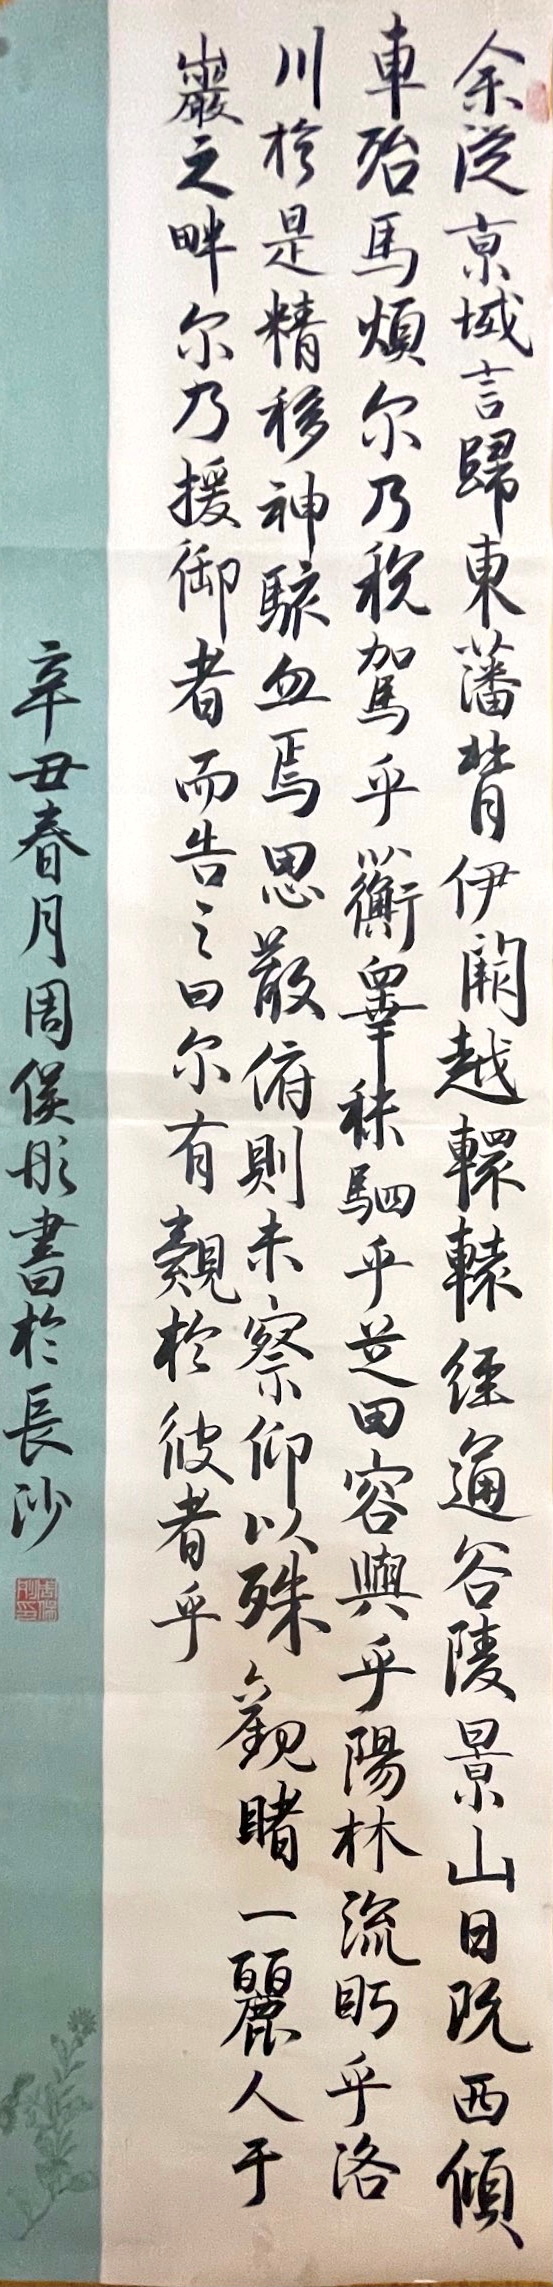 余從京域言歸東藩背伊闕越轘轅經通谷陵景山日既西傾
車殆馬煩尔乃稅駕乎蘅皋秣駟乎芝田容與乎陽林流眄乎洛
川於是精移神駭忽焉思散俯則未察仰以殊觀睹一麗人于
巖之畔尔乃援御者而告之曰尔有覿於彼者乎
辛丑春月周侯彤書於長沙